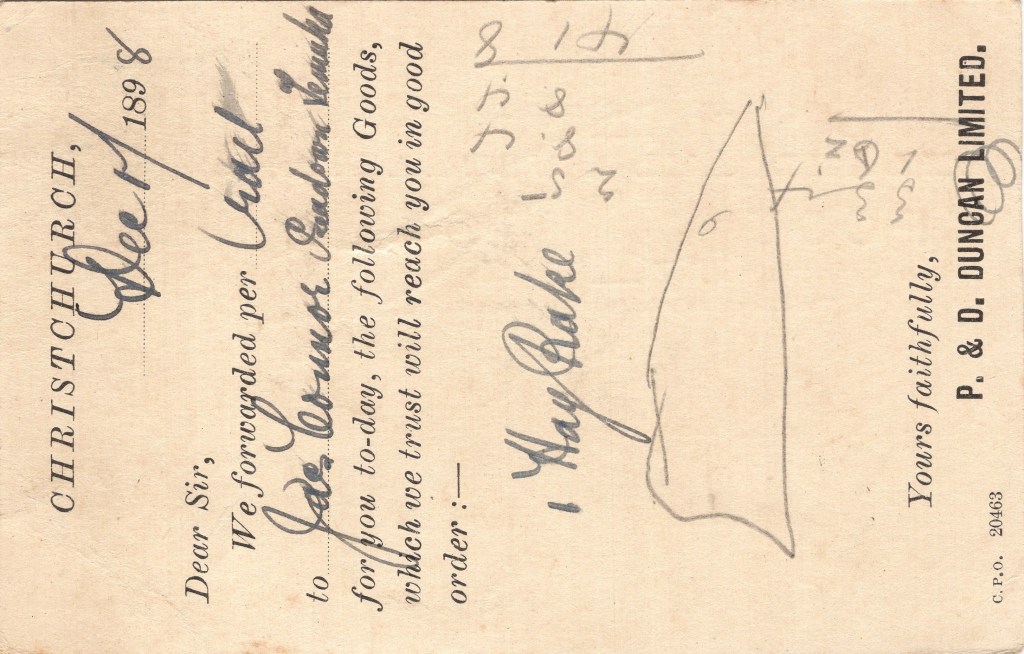 CHRISTCHURCH,
Dec 17 1898
Dear Sir,
We forwarded per
to Jas Connor
for you to-day, the following Goods,
which we trust will reach you in good
order:—
1 Hay Rake
Yours faithfully,
P. & D. DUNCAN LIMITED.
C.P.O. 20463